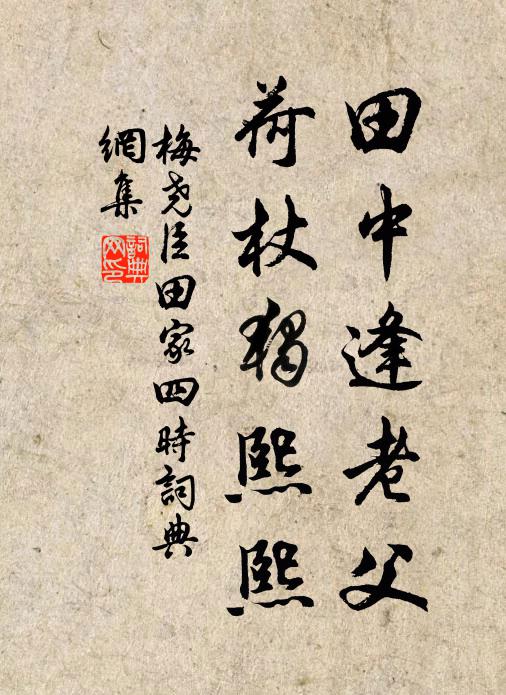 田中逢老父
荷杖独熙熙
梅尧臣田家四時詞典
網集
詞典
网印